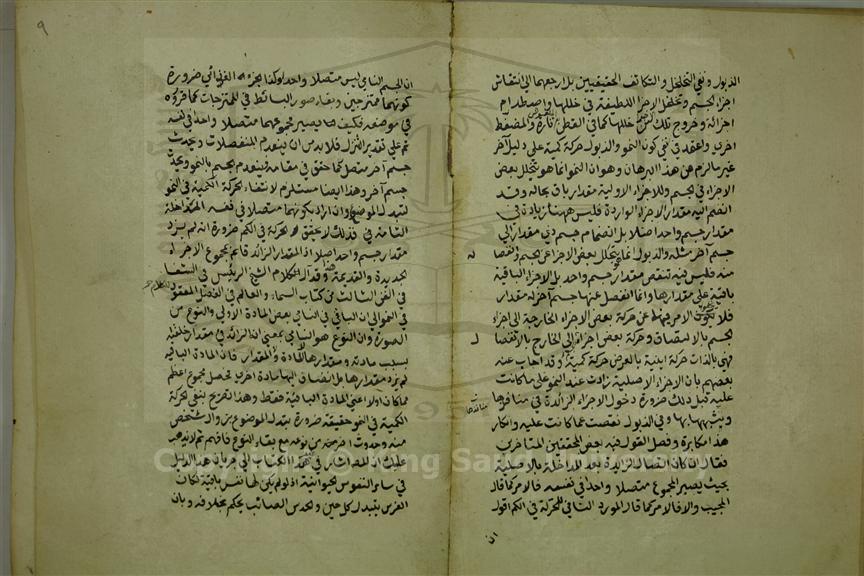 الذبول ونفي التخلخل والتكاثف الحقيقيين بل ارجعهما الى انتفاش
اجزاء الجسم وتخلخل الاجزاء اللطيفة في خللها واصطدام
اجزائه وخروج تلك عن خللها كما في القطن تارة والمضغط
اخرى واعتمد في نفي كون النمو والذبول حركة كمية على دليل آخر
غير ما لزم عن هذا البرهان وهو ان النمو انما هو بتخلل بعض
الاجزاء في الجسم وللاجزاء الاولية مقدار باق بحاله وقد
انضم اليه مقدار الاجزاء الواردة فليس ههنا زيادة في
مقدار جسم واحد اصلا بل انضمام جسم ذي مقدار الى
جسم آخر مثله والذبول انما بتحلل بعض الاجزاء عن الجسم وانفصالها
منه فليس فيه تنقص مقدار جسم واحد بل الاجزاء الباقية
باقية على مقدارها وانما انفصل عنها جسم آخر له مقدار
فلا يكون الامر فيهما عن حركة بعض الاجزاء الخارجة الى اجزاء
الجسم بالالتصاق وحركة بعض اجزائه الى الخارج بالانفصال
فهي بالذات حركة اينية بالعرض حركة كمية وقد اجاب عنه
بعضهم بان الاجزاء الاصلية زادت عند النمو على ما كانت
عليه قبل ذلك ضرورة دخول الاجزاء الزائدة في منافذها
وتشبهها بها وفي الذبول نقصت عما كانت عليه وانكار
هذا مكابرة وفصل القول فيه بعض المحققين المتاخرين
فقال ان كان اتصال الزائدة بعد المداخلة بالاصلية
بحيث يصير المجموع متصلا واحدا في نفسه فالامر كما قال
المجيب والا فالامر كما قال المورد النافي للحركة في الكم اقول
ان
٩
ان الجسم النامي ليس متصلا واحدا وكذا الغذائي ضرورة
كونهما ممتزجين وبقاء صور البسائط في الممتزجات كما قرروه
في موضعه فكيف يصير مجموعهما متصلا واحدا في نفسه
ثم على تقدير التنزل فلا بد من ان ينعدم المنفصلات ويحدث
جسم آخر متصل كما حقق في مقامه فينعدم الجسم بالنمو ويحدث
جسم آخر وهذا ايضا مستلزم لانتفاء الحركة الكمية في النمو
لتبدل الموضوع وان اراد بكونهما متصلا في نفسه المداخلة
التامة فذلك لا يحقق الحركة في الكم ضرورة انه لم يزد
مقدار جسم واحد اصلا اذ المقدار الزائد قائم بمجموع الاجزاء
الجديدة والقديمة وقد آل كلام الشيخ الرئيس في الشفا
في الفن الثالث من كتاب السماء والعالم في الفصل المعقود
في النمو الى ان الباقي في النامي بعض المادة الاولى والنوع من
الصورة وان النوع هو النامي بمعنى انه الزائد في مقدار خلقته
بسبب مادته ومقدارها لا المادة والمقدار فان المادة الباقية
لم يزد مقدارها بل انضاف اليها مادة اخرى تحصل مجموع اعظم
مما كان اولا عني المادة الباقية فقط وهذا تصريح بنفي الحركة
الكمية في النمو حقيقة ضرورة تبدل الموضوع من والشخص
منه وحدوث اخر من نوعه مع بقاء النوع فافهم ثم لا يذهب
عليك ان المص اشار في هذا الكتاب الى جريان هذا الدليل
في سائر النفوس الحيوانية اذ لو لم يكن لها نفس باقية لكان
الفرس يتبدل كل حين والحدس الصائب يحكم بخلافه وبان
Copyright © King Saud University